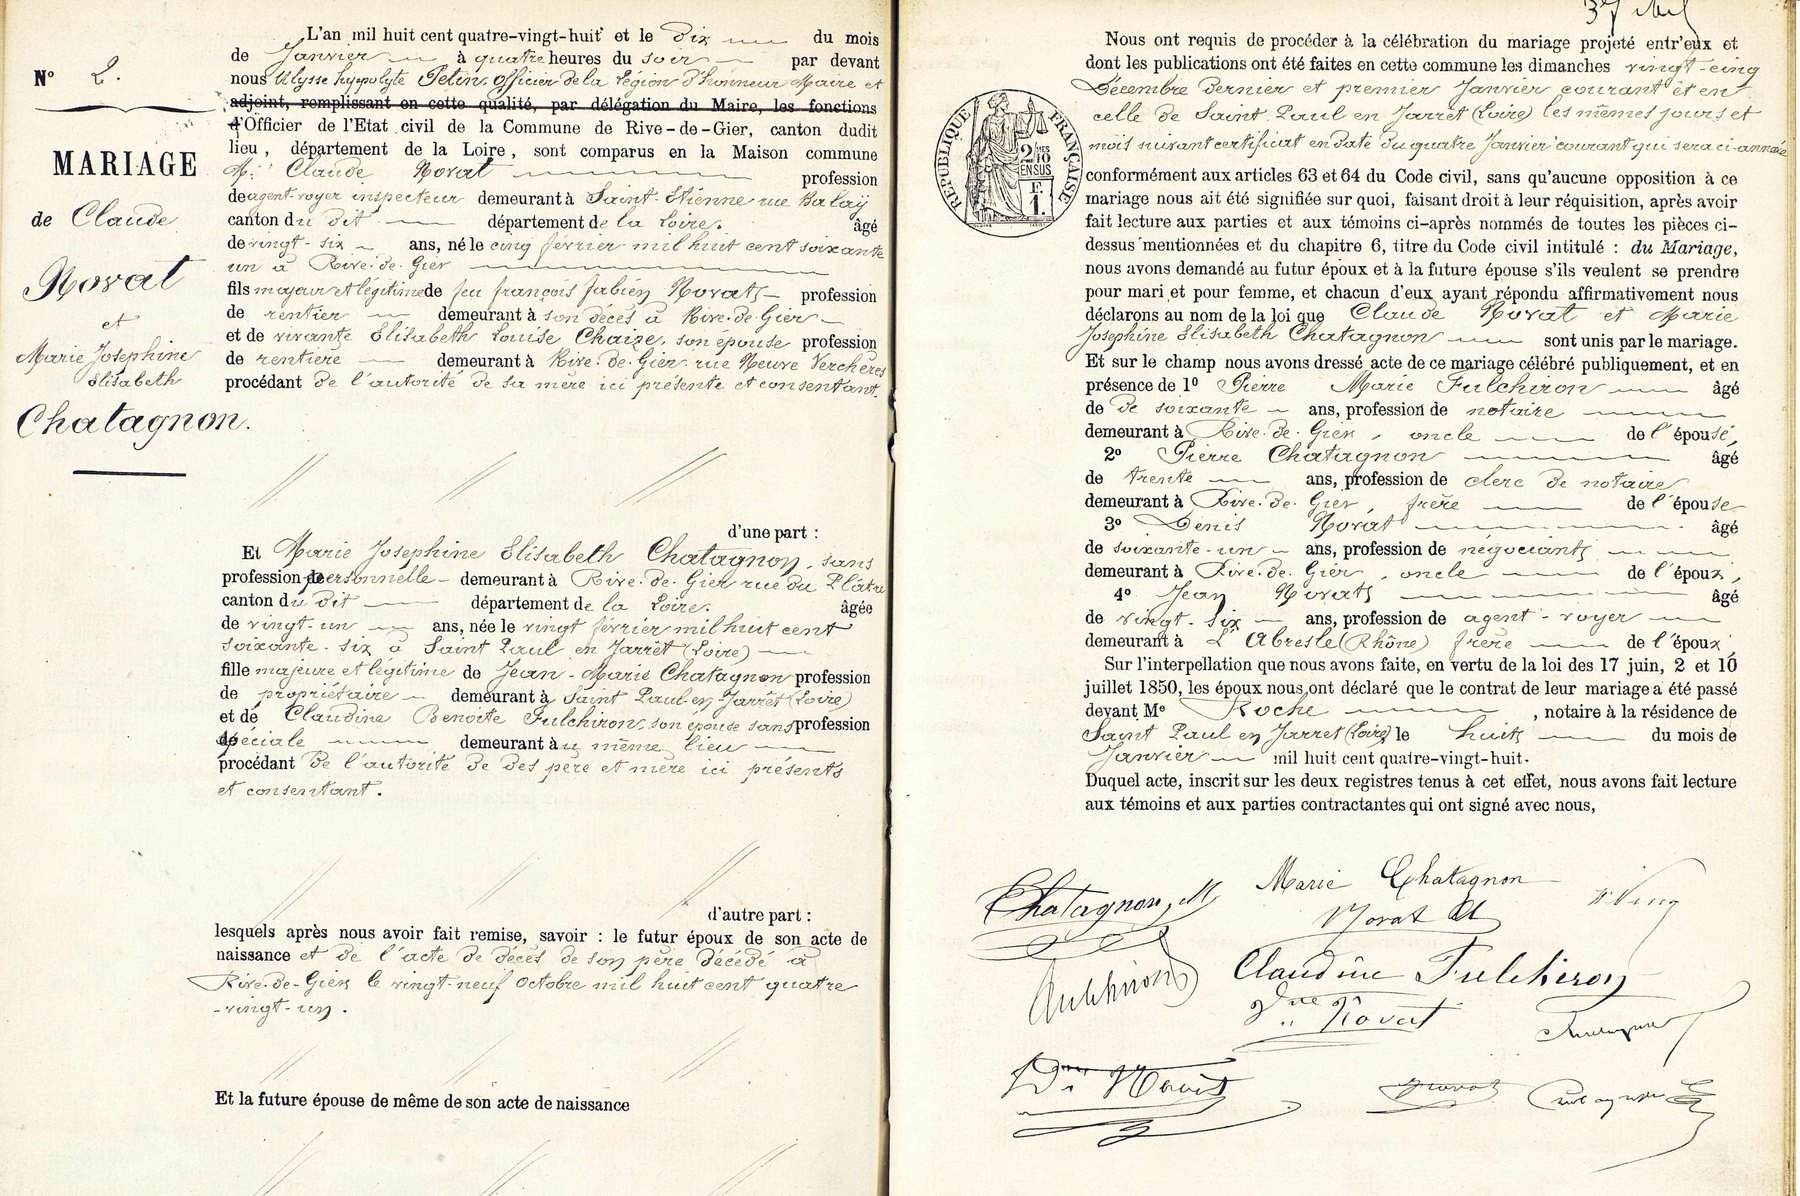 L'an mil huit cent quatre-vingt-huit et le dix du mois
de Janvier à quatre heures du soir par devant
nous Ulysse hyppolyte Petin, officier de la Légion d'honneur Maire et
adjoint, remplissant en cette qualité, par délégation du Maire, les fonctions
d'Officier de l'Etat civil de la Commune de Rive-de-Gier, canton dudit
lieu, département de la Loire, sont comparus en la Maison commune
M. Claude Novat profession
de agent-voyer inspecteur demeurant à Saint-Etienne rue Balaÿ
canton du dit département de la Loire. âgé
de vingt-six ans, né le cinq février mil huit cent soixante
un à Rive-de-Gier
fils majeur et légitime de feu françois fabien Novat profession
de rentier demeurant à son décès à Rive-de-Gier
et de vivante Elisabeth Louise Chaize, son épouse profession
de rentière demeurant à Rive-de-Gier rue Neuve Verchères
procédant de l'autorité de sa mère ici présente et consentant.
N° 2.
MARIAGE
de Claude
Novat
et
Marie Josephine
Elisabeth
Chatagnon.
d'une part :
Et Marie Josephine Elisabeth Chatagnon, sans
profession personnelle demeurant à Rive-de-Gier rue du Plâtre
canton du dit département de la Loire. âgée
de vingt-un ans, née le vingt février mil huit cent
soixante-six à Saint Paul en Jarret (Loire)
fille majeure et légitime de Jean-Marie Chatagnon profession
de propriétaire demeurant à Saint Paul-en-Jarrêt (Loire)
et de Claudine Benoite Fulchiron, son épouse sans profession
spéciale demeurant au même lieu
procédant de l'autorité de des père et mère ici présents
et consentant.
d'autre part :
lesquels après nous avoir fait remise, savoir : le futur époux de son acte de
naissance et de l'acte de décès de son père décédé à
Rive-de-Gier le vingt-neuf octobre mil huit cent quatre
-vingt-un.
Et la future épouse de même de son acte de naissance
Nous ont requis de procéder à la célébration du mariage projeté entr'eux et
dont les publications ont été faites en cette commune les dimanches vingt-cinq
Décembre dernier et premier Janvier courant et en
celle de Saint Paul en Jarret (Loire) les mêmes jours et
mois suivant certificat en date du quatre Janvier courant qui sera ci-annexée
RÉPUBLIQUE FRANÇAISE
2/10mes
EN SUS
F.
1.
conformément aux articles 63 et 64 du Code civil, sans qu'aucune opposition à ce
mariage nous ait été signifiée sur quoi, faisant droit à leur réquisition, après avoir
fait lecture aux parties et aux témoins ci-après nommés de toutes les pièces ci-
dessus mentionnées et du chapitre 6, titre du Code civil intitulé : du Mariage,
nous avons demandé au futur époux et à la future épouse s'ils veulent se prendre
pour mari et pour femme, et chacun d'eux ayant répondu affirmativement nous
déclarons au nom de la loi que Claude Novat et Marie
Josephine Elisabeth Chatagnon sont unis par le mariage.
Et sur le champ nous avons dressé acte de ce mariage célébré publiquement, et en
présence de 1° Pierre Marie Fulchiron âgé
de de soixante ans, profession de notaire
demeurant à Rive-de-Gier, oncle de l'épouse,
2° Pierre Chatagnon âgé
de trente ans, profession de clerc de notaire
demeurant à Rive-de-Gier, frère de l'épouse
3° Denis Novat âgé
de soixante-un ans, profession de négociant
demeurant à Rive-de-Gier, oncle de l'époux,
4° Jean Novat âgé
de vingt-six ans, profession de agent-voyer
demeurant à L'Abresle (Rhône) frère de l'époux,
Sur l'interpellation que nous avons faite, en vertu de la loi des 17 juin, 2 et 10
juillet 1850, les époux nous ont déclaré que le contrat de leur mariage a été passé
devant Me Roche, notaire à la résidence de
Saint Paul en Jarret (Loire) le huit du mois de
Janvier mil huit cent quatre-vingt-huit.
Duquel acte, inscrit sur les deux registres tenus à cet effet, nous avons fait lecture
aux témoins et aux parties contractantes qui ont signé avec nous,
Chatagnon, M
Marie Chatagnon
Novat Cl
Fulchiron
Claudine Fulchiron
Vve Novat
Dis Novat
Novat